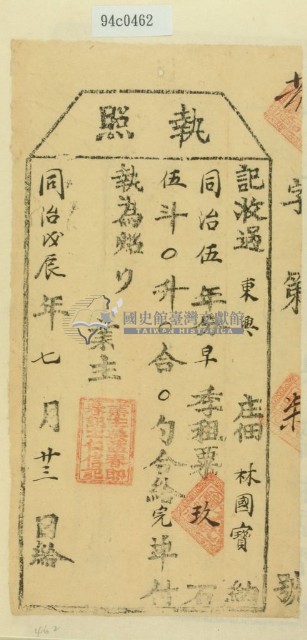 94c0462
字第柒號
執照
記收過東興庄佃林國寶納
同治伍年早季租粟玖石
伍斗〇升〇合〇勺合給完單付
執為炤
業主
同治戊辰年七月廿三日給
國史館臺灣文獻館
TAIWAN HISTORICA